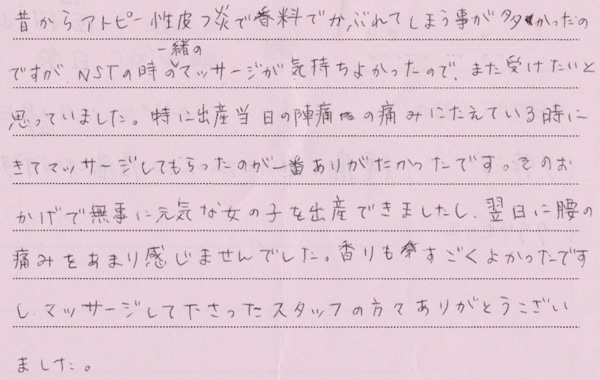 昔からアトピー性皮フ炎で香料でかぶれてしまう事が多かったの
ですが、NSTの時の一緒のマッサージが気持ちよかったので、また受けたいと
思っていました。特に出産当日の陣痛の痛みにたえている時に
きてマッサージしてもらったのが一番ありがたかったです。そのお
かげで無事に元気な女の子を出産できましたし、翌日に腰の
痛みをあまり感じませんでした。香りもすごくよかったです
し、マッサージして下さったスタッフの方々ありがとうござい
ました。